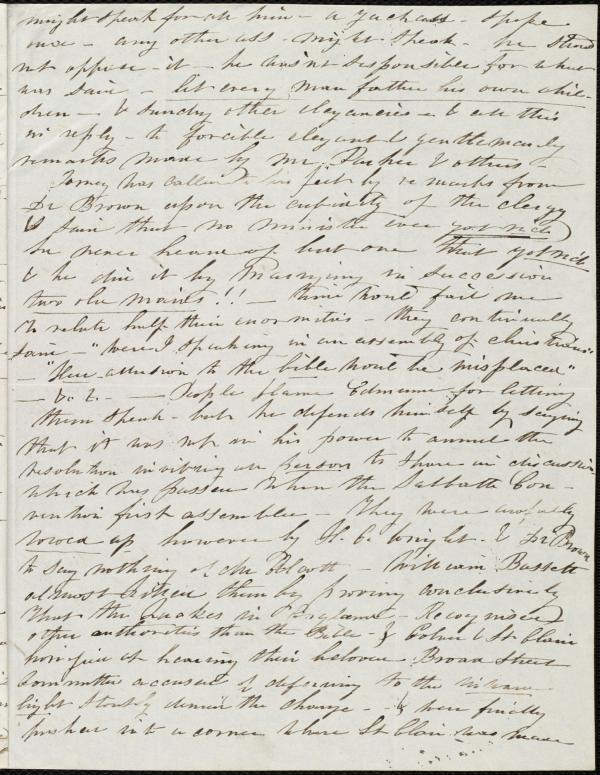 might speak for all him - a Jackass - spoke
once - any other ass - might speak - he should
not oppose it - he wasn't responsible for what
was said - let every man father his own chil-
dren - & sundry other elegancies - & all this
in reply - to forcible elegant & gentlemanly
remarks made by Mr. Parker & others -
Torrey was called to his feet by remarks from
Dr Brown upon the cupidity of the clergy
& said that no minister ever got rich
he never heard of but one that got rich
& he did it by marrying in succession
two old maids!! - time would fail me
to relate half their enormities - they continually
said - "were I speaking in an assembly of christians"
- "Here allusion to the bible would be misplaced"
- &. &. - People blame Edmund for letting
them speak - but he defends himself by saying
that it was not in his power to annul the
resolution inviting all persons to share in discussion
which was passed when the Sabbath Con-
vention first assembled - They were awfully
rowed up however by H. C. Wright - & Dr Brown
to say nothing of Mr Alcott - William Bassett
almost killed them by proving conclusively
that the Quakers in England - Recognised
other authorities than the Bible - & Colver & St Clair
horrified at hearing their beloved Broad Street
committee accused of deferring to the inward
light stoutly denied the charge - & were finally
pushed into a corner where St Clair was made